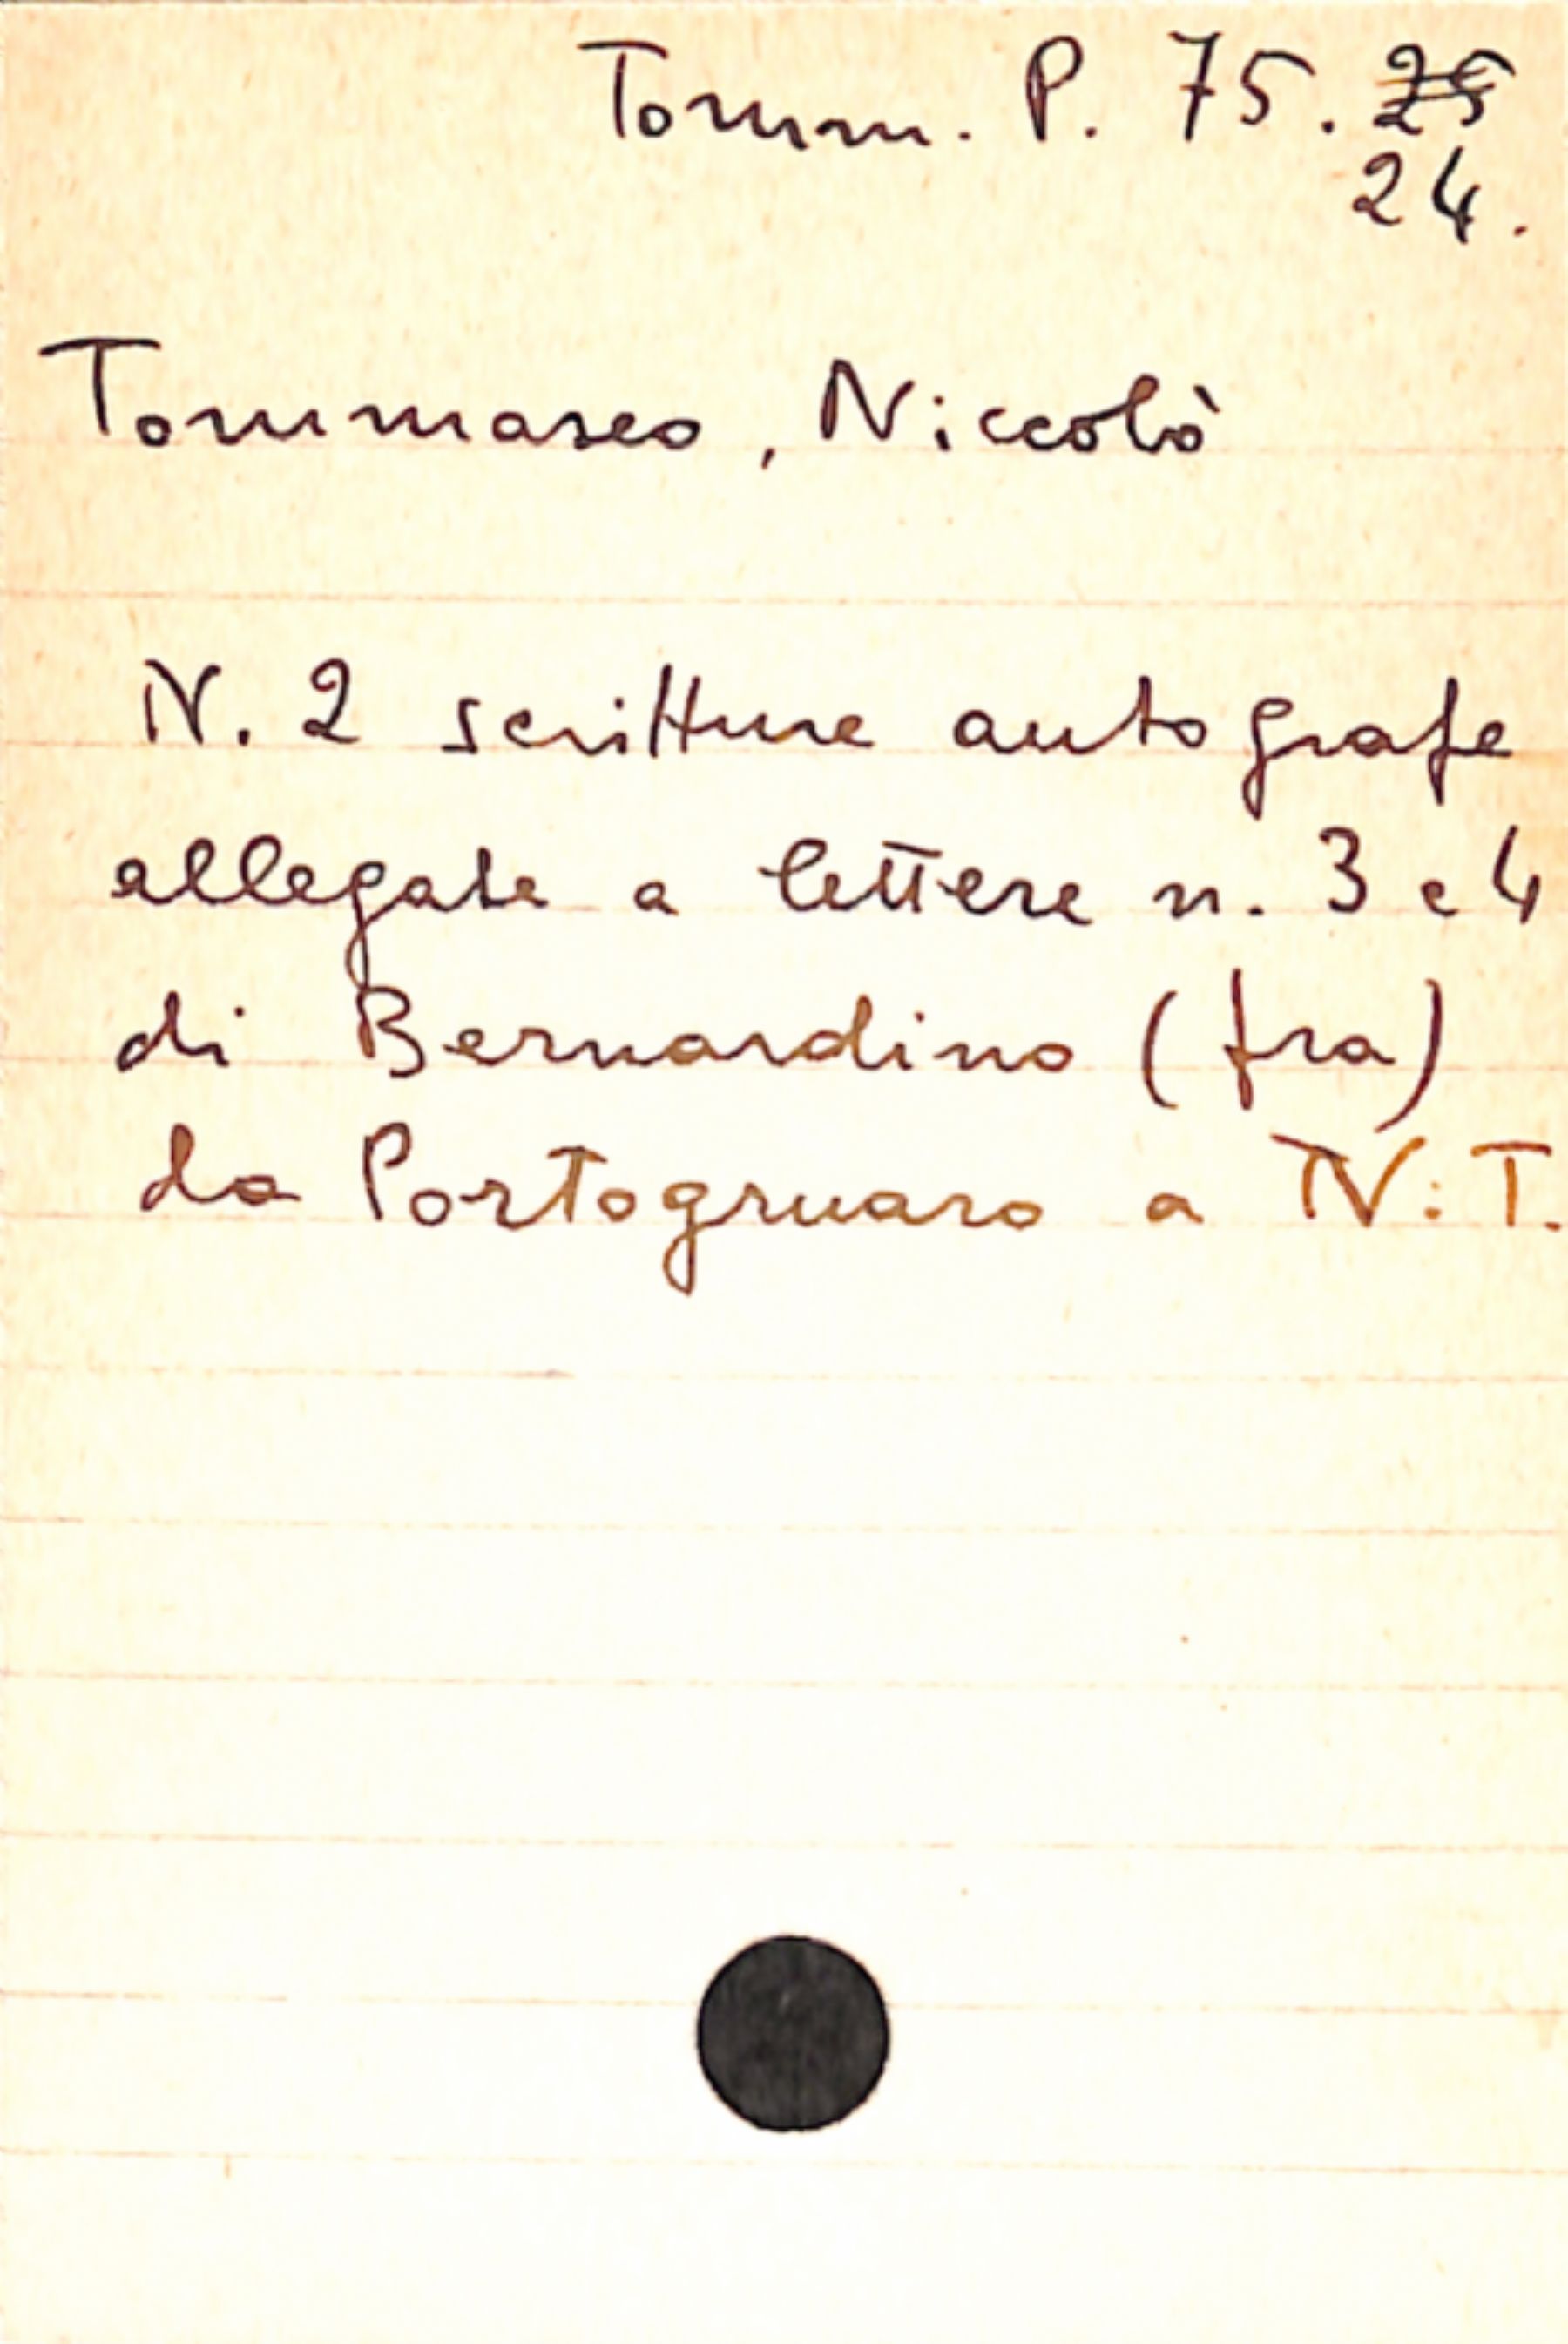 Tomm. P. 75. 25
24.
Tommaseo, Niccolò
N. 2 scritture autografe
allegate a lettere n. 3 e 4
di Bernardino (fra)
da Portogruaro a N. T.